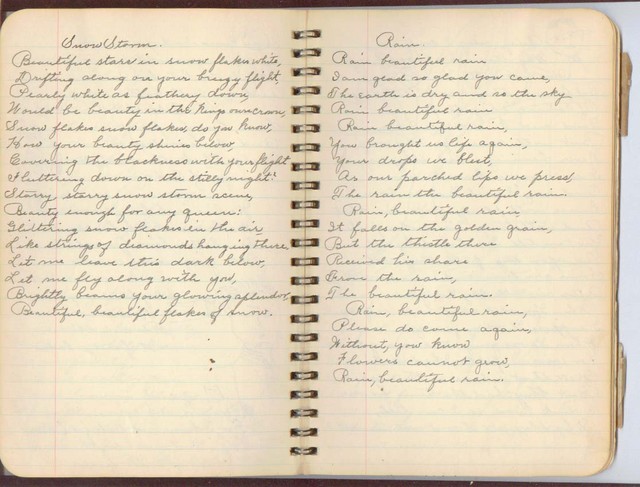 Snow Storm.
Beautiful stars in snow flakes white,
Drifting along on your breezy flight,
Pearly white as feathery down,
Would be beauty in the kings own crown,
Snow flakes snow flakes, do you know,
How your beauty shines below,
Covering the blackness with your flight
Fluttering down on the stilly night!
Starry, starry snow storm scene,
Beauty enough for any queen:
Glittering snow flakes in the air
Like strings of diamonds hanging there.
Let me leave this dark below,
Let me fly along with you,
Brightly beams your glowing splendor
Beautiful, beautiful flakes of snow.
Rain.
Rain beautiful rain
I am glad so glad you came,
The earth is dry and so the sky
Rain beautiful rain
Rain beautiful rain,
You brought us life again,
Your drops we blest,
As our parched lips we press,
The rain the beautiful rain.
Rain, beautiful rain,
It falls on the golden grain,
But the thistle there
Received his share
From the rain,
The beautiful rain.
Rain, beautiful rain,
Please do come again,
Without, you know
Flowers cannot grow,
Rain, beautiful rain.